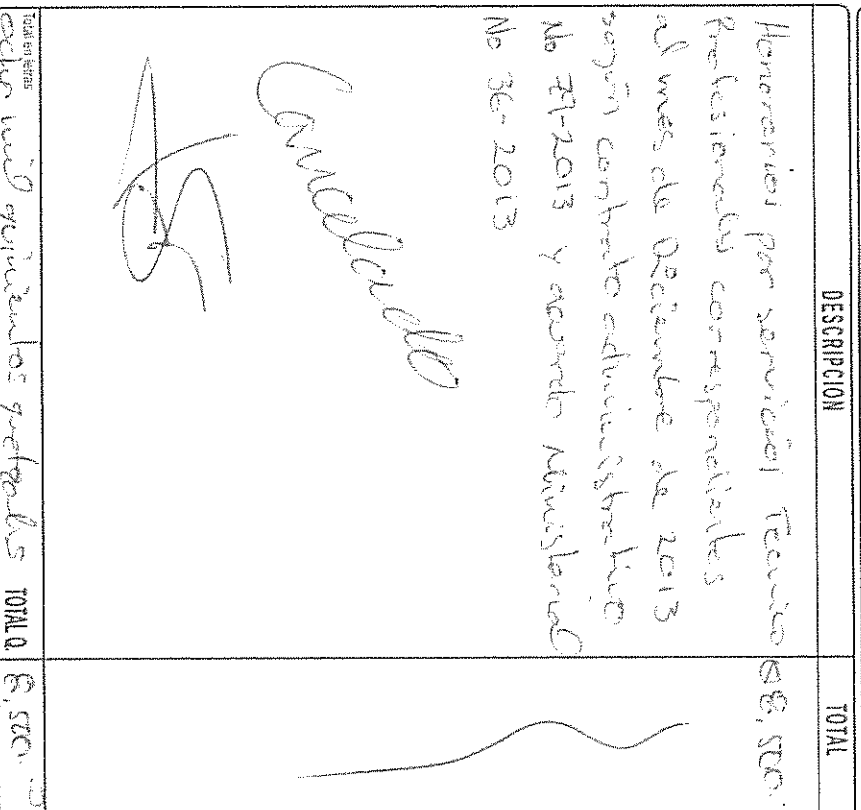 DESCRIPCION TOTAL
Honorarios por servicios Tecnico Q8,500.
Profesionales correspondientes
al mes de Diciembre de 2013
según contrato administrativo
No 79-2013 y acuerdo Ministerial
No 36-2013
Cancelado
Total en letras
ocho mil quinientos quetzales TOTAL Q. 8,500.